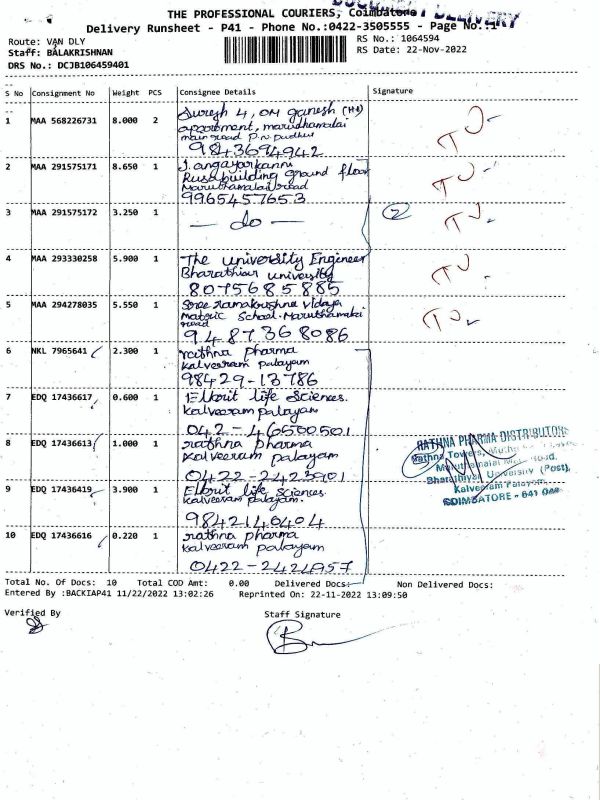 DOCUMENT DELIVERY
THE PROFESSIONAL COURIERS, Coimbatore
Delivery Runsheet - P41 - Phone No.:0422-3505555 - Page No.:1
Route: VAN DLY
RS No.: 1064594
Staff: BALAKRISHNAN
RS Date: 22-Nov-2022
DRS No.: DCJB106459401
S No Consignment No Weight PCS Consignee Details Signature
1 MAA 568226731 8.000 2 Suresh 4, OM ganesh (H4)
appartment, marudhamalai
main road P.N Pudhur
9843694942
2 MAA 291575171 8.650 1 J. angayarkanni
Rusa building ground floor
Maruthamalai road
9965457653
3 MAA 291575172 3.250 1 — do — 2
4 MAA 293330258 5.900 1 The university Engineer
Bharathiar university
8075685885
5 MAA 294278035 5.550 1 Sree ramakrishna Vidaya
Matric School. Maruthamalai
road
9487368086
6 NKL 7965641 2.300 1 rathna pharma
kalveeram palayam
98429-13786
7 EDQ 17436617 0.600 1 Elkorit life Sciences.
kalveeram palayam
042-46500501
8 EDQ 17436613 1.000 1 rathna pharma
kalveeram palayam
0422-2423901
9 EDQ 17436419 3.900 1 Elkorit life Sciences.
kalveeram palayam.
9842140404
10 EDQ 17436616 0.220 1 rathna pharma
kalveeram palayam
0422-2424957
RATHNA PHARMA DISTRIBUTORS
Rathna Towers,
Maruthamalai Main Road,
Bharathiyar University (Post),
Kalveeram Palayam,
COIMBATORE - 641 046
Total No. Of Docs: 10 Total COD Amt: 0.00 Delivered Docs: Non Delivered Docs:
Entered By :BACKIAP41 11/22/2022 13:02:26 Reprinted On: 22-11-2022 13:09:50
Verified By Staff Signature